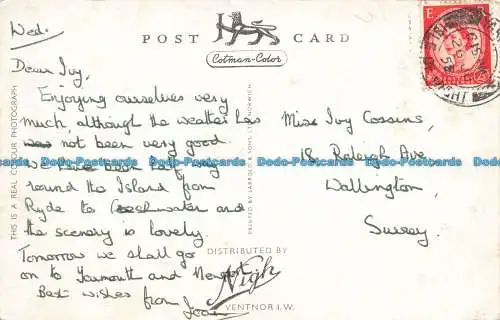 Wed.
POST CARD
Cotman-Color
Dear Ivy,
Enjoying ourselves very
much, although the weather has
not been very good.
We have been half way
round the Island from
Ryde to Freshwater and
the scenery is lovely.
Tomorrow we shall go
on to Yarmouth and Newport.
Best wishes
from Joan
Miss Ivy Cossins,
18 Raleigh Ave,
Wallington,
Surrey.
THIS IS A REAL COLOUR PHOTOGRAPH
PRINTED BY JARROLD & SONS LTD. NORWICH
DISTRIBUTED BY
Nigh
VENTNOR I.W.
Dodo-Postcards Dodo-Postcards Dodo-Postcards Dodo-Postcards Dodo-Postcards